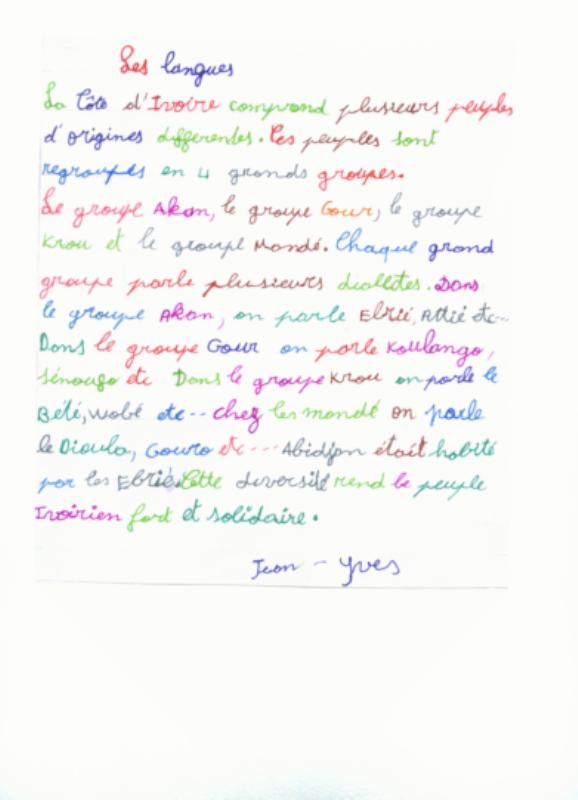 Les langues
La Côte d'Ivoire comprend plusieurs peuples
d'origines differentes. Ces peuples sont
regroupés en 4 grands groupes.
Le groupe Akan, le groupe Gour, le groupe
Krou et le groupe Mandé. Chaque grand
groupe parle plusieurs dialletes. Dans
le groupe Akan, on parle Ebrié, Attié etc...
Dans le groupe Gour on parle Koulango,
Sénoufo etc Dans le groupe Krou on parle le
Bété, wobé etc... chez les mandé on parle
le Dioula, Gouro etc.... Abidjan était habité
par les Ebrié. Cette diversité rend le peuple
Ivoirien fort et solidaire.
Jean - Yves